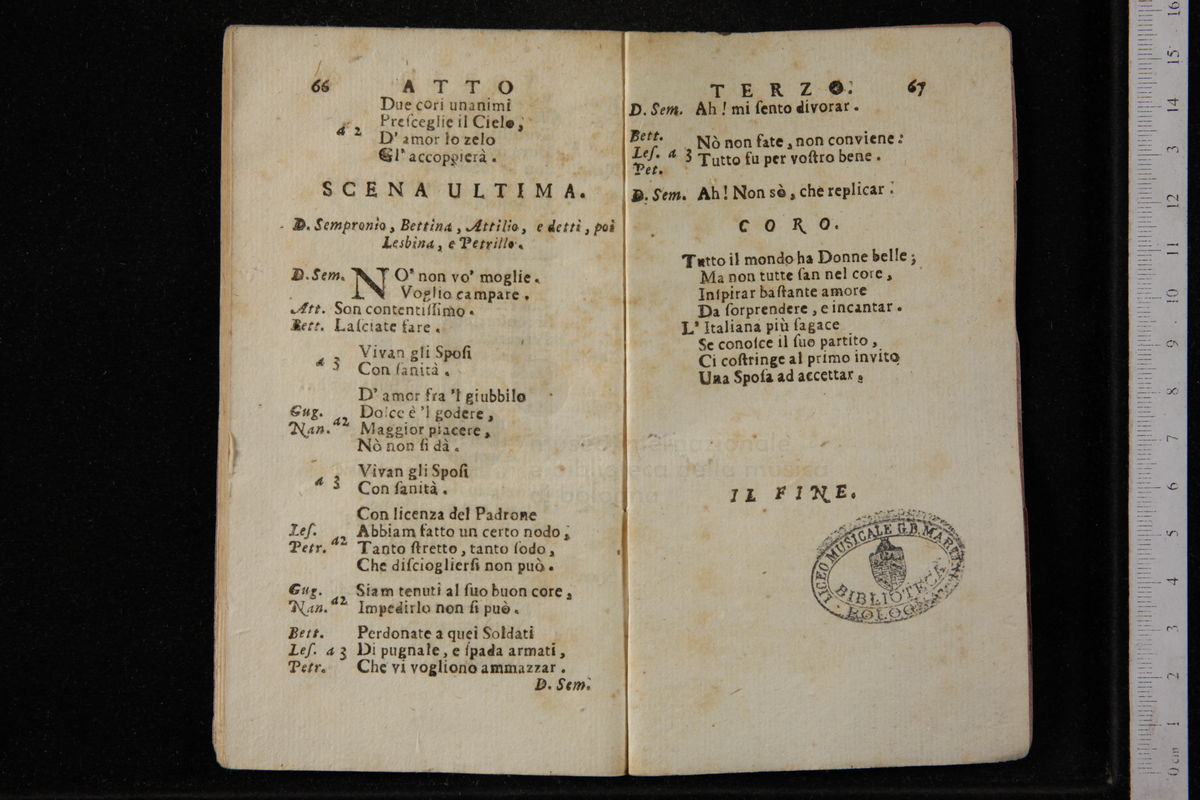 66 ATTO
Due cori unanimi
a 2 Preſceglie il Cielo,
D' amor lo zelo
Gl' accoppierà.
SCENA ULTIMA.
D. Sempronio, Bettina, Attilio, e detti, poi
Lesbina, e Petrillo.
D. Sem. NO' non vo' moglie.
Voglio campare.
Att. Son contentiſſimo.
Bett. Laſciate fare.
a 3 Vivan gli Spoſi
Con ſanità.
D' amor fra 'l giubbilo
Gug. a2 Dolce è 'l godere,
Nan. Maggior piacere,
Nò non ſi dà.
a 3 Vivan gli Spoſi
Con ſanità.
Con licenza del Padrone
Leſ. a2 Abbiam fatto un certo nodo,
Petr. Tanto ſtretto, tanto ſodo,
Che diſcioglierſi non può.
Gug. a2 Siam tenuti al ſuo buon core,
Nan. Impedirlo non ſi può.
Bett. Perdonate a quei Soldati
Leſ. a 3 Di pugnale, e ſpada armati,
Petr. Che vi vogliono ammazzar.
D. Sem.
TERZO. 67
D. Sem. Ah! mi ſento divorar.
Bett. Nò non fate, non conviene:
Leſ. a 3 Tutto fu per voſtro bene.
Pet.
D. Sem. Ah! Non sè, che replicar.
CORO.
Tutto il mondo ha Donne belle;
Ma non tutte ſan nel core,
Inſpirar baſtante amore
Da ſorprendere, e incantar.
L' Italiana più ſagace
Se conoſce il ſuo partito,
Ci coſtringe al primo invito
Una Spoſa ad accettar.
IL FINE.
LICEO MUSICALE G.B. MARTINI
BIBLIOTECA
BOLOGNA
museo internazionale
e biblioteca della musica
di bologna